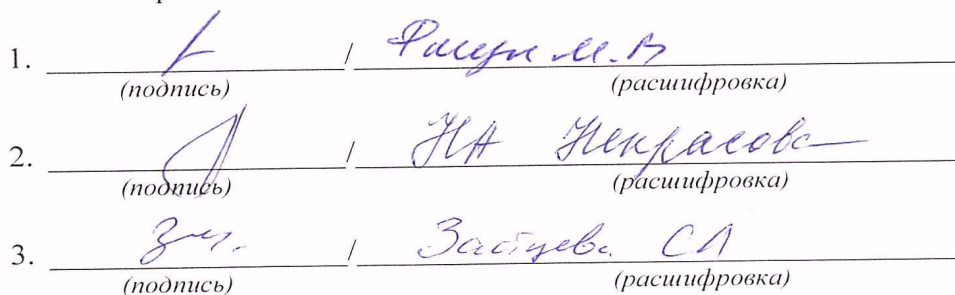 1. / М.В
(подпись) (расшифровка)
2. / НА Некрасова
(подпись) (расшифровка)
3. / СЛ
(подпись) (расшифровка)